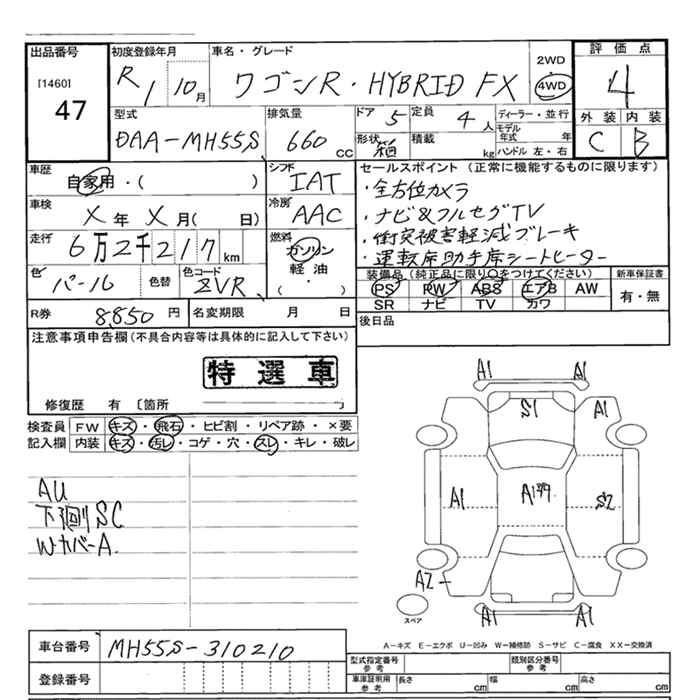 出品番号 [1460] 47
初度登録年月 R 1 10 月
車名・グレード ワゴンR・HYBRID FX
2WD 4WD
評価点 4
外装 C 内装 B
型式 DAA-MH55S
排気量 660 CC
ドア 5 定員 4 人
形状 箱 積載 kg
ディーラー・並行
モデル年式 年
ハンドル 左・右
車歴 自家用・( )
シフト IAT
車検 X 年 X 月( 日)
冷房 AAC
走行 6万2千217 km
燃料 ガソリン 軽油 ・ ( )
色 パール 色替 色コード ZVR
セールスポイント (正常に機能するものに限ります)
・全方位カメラ
・ナビ&フルセグTV
・衝突被害軽減ブレーキ
・運転席助手席シートヒーター
装備品(純正品に限り○をつけてください) 新車保証書
PS PW ABS エアB AW
SR ナビ TV カワ
有・無
R券 8850 円 名変期限 月 日
後日品
注意事項申告欄(不具合内容等は具体的に記入して下さい)
特選車
修復歴 有 〔箇所
検査員記入欄
FW キズ・飛石・ヒビ割・リペア跡・×要
内装 キズ・汚レ・コゲ・穴・スレ・キレ・破レ
AU
下廻SC
WカバーA
A1 A1
S1 A1
A1 S2
A2
スペア A1 A1
A-キズ E-エクボ U-凹み W-補修跡 S-サビ C-腐食 XX-交換済
車台番号 MH55S-310210
登録番号
型式指定番号 参考 類別区分番号 参考
車庫証明用 参考 長さ cm 幅 cm 高さ cm